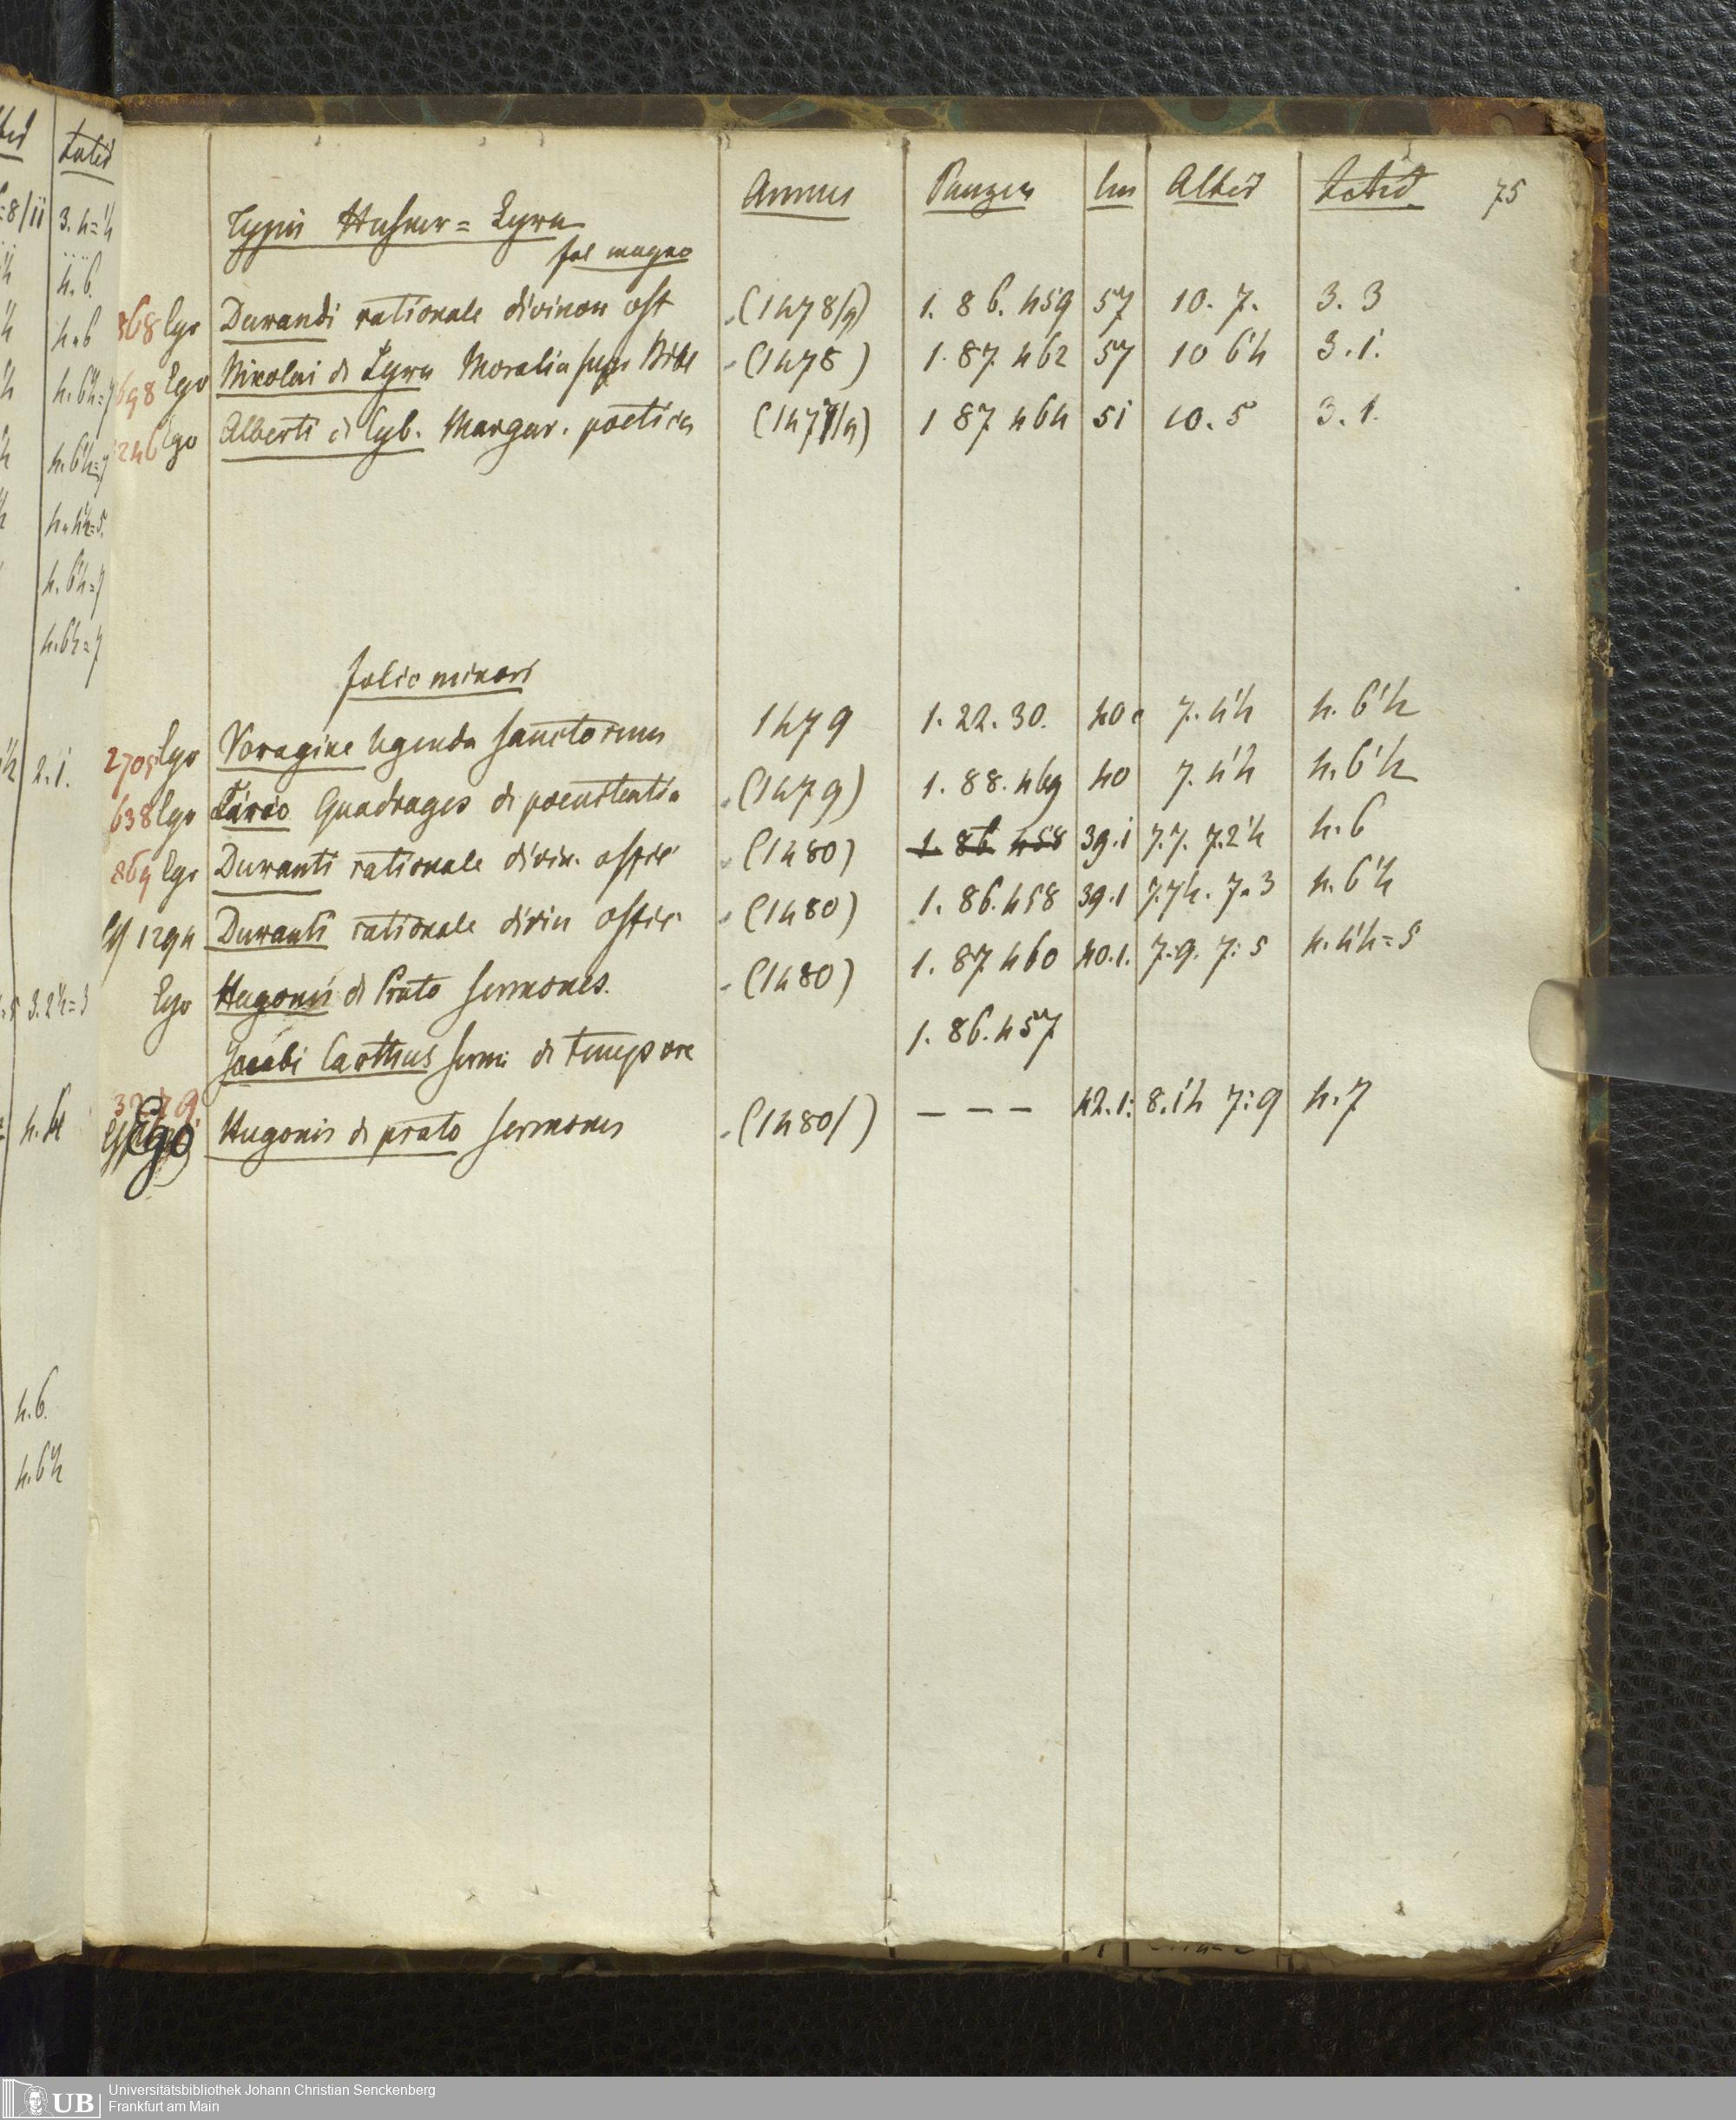 Annus Panzer lin Altid Latid 75
Typis Husner = Lyra
fol magno
368 Ego Durandi rationale divinor off (1478/9) 1. 86. 459 57 10. 7. 3. 3
698 Ego Nikolai di Lyra Moralia super Bibl (1478) 1. 87. 462 57 10 6½ 3. 1.
246 Ego Alberti d Eyb. Margar. poetica 1 87 464 51 10. 5 3. 1.
folio minori
2705 Ego Voragine legenda sanctorum 1479 1. 22. 30. 40 7. 4½ 4. 6½
638 Ego Quadrages d poenitentia (1479) 1. 88. 469 40 7. 4½ 4. 6½
869 Ego Duranti rationale divin. offic (1480) 1. 86. 458 39.1 7.7. 7.2½ 4. 6
1294 Duranti rationale divin offic (1480) 1. 86. 458 39.1 7.7½. 7. 3 4. 6½
Ego Hugonis d Prato sermones. (1480) 1. 87. 460 40.1. 7.9. 7:5 4. 4½=5
Jacobi Carthus serm: d tempore 1. 86. 457
Ego Hugonis d prato sermones (1480/) - - - 42.1: 8.1½ 7:9 4. 7
Latid
3. 4=½
4. 6.
4. 6
4. 6½=7
4. 6½=7
4. 4½=5.
4. 6½=7
4. 6½=7
2. 1.
3. 2½=3
4. 6.
4. 6½
UB Universitätsbibliothek Johann Christian Senckenberg
Frankfurt am Main